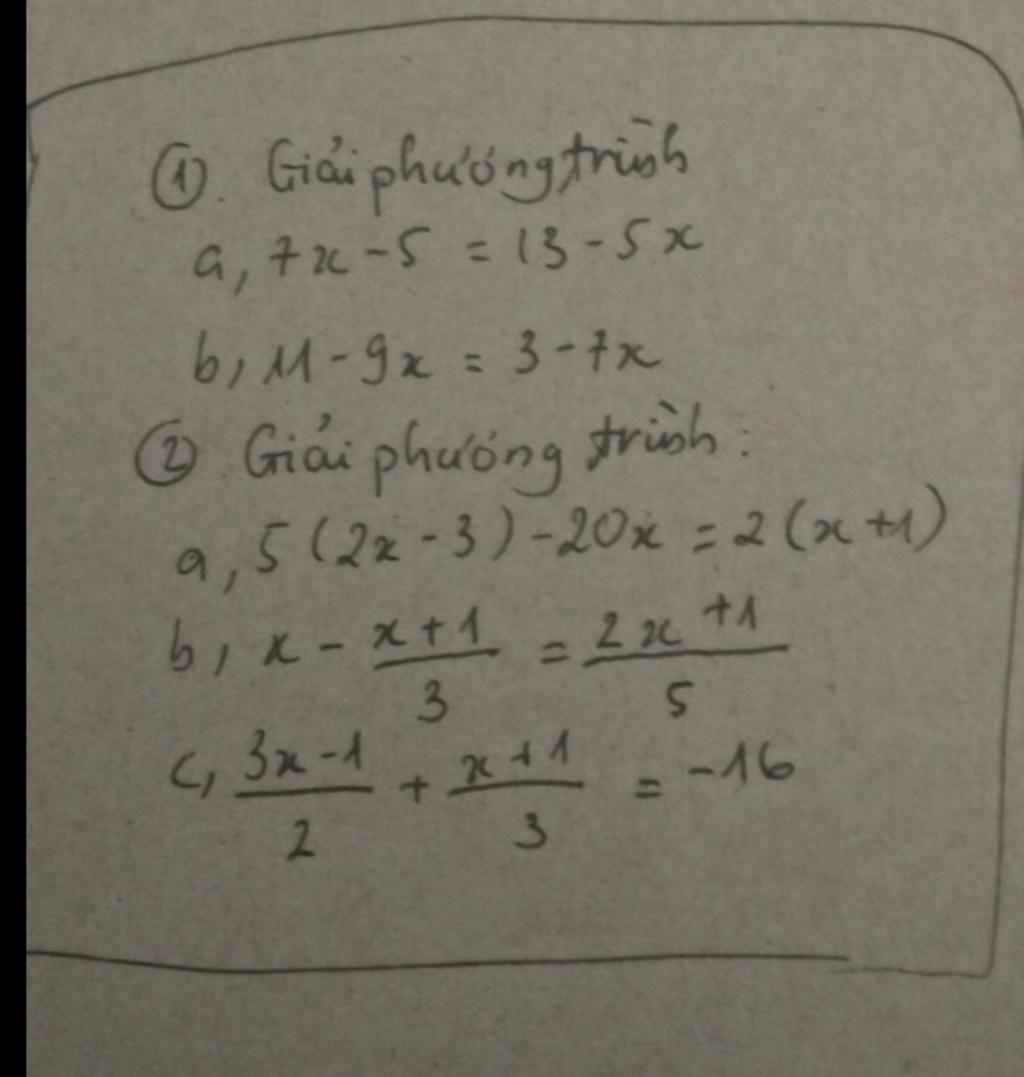 ①. Giải phương trình
a, 7x - 5 = 13 - 5x
b, 11 - 9x = 3 - 7x
② Giải phương trình:
a, 5(2x - 3) - 20x = 2(x + 1)
b, x - \frac{x+1}{3} = \frac{2x+1}{5}
c, \frac{3x-1}{2} + \frac{x+1}{3} = -16